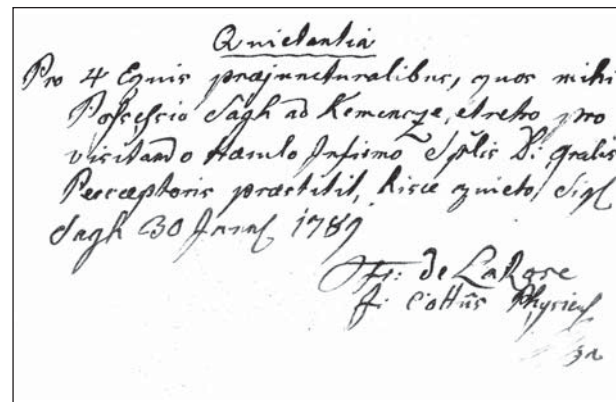 Quietantia
Pro 4 Equis praejuncturalibus, quos mihi
Possessio Sagh ad Kemencze, et retro pro
visitando Infirmo D: gralis
Perceptoris praestitit, hisce quieto, Sigl
Sagh 30 1789
Fr: de LaRose
I: Cottûs Physicus